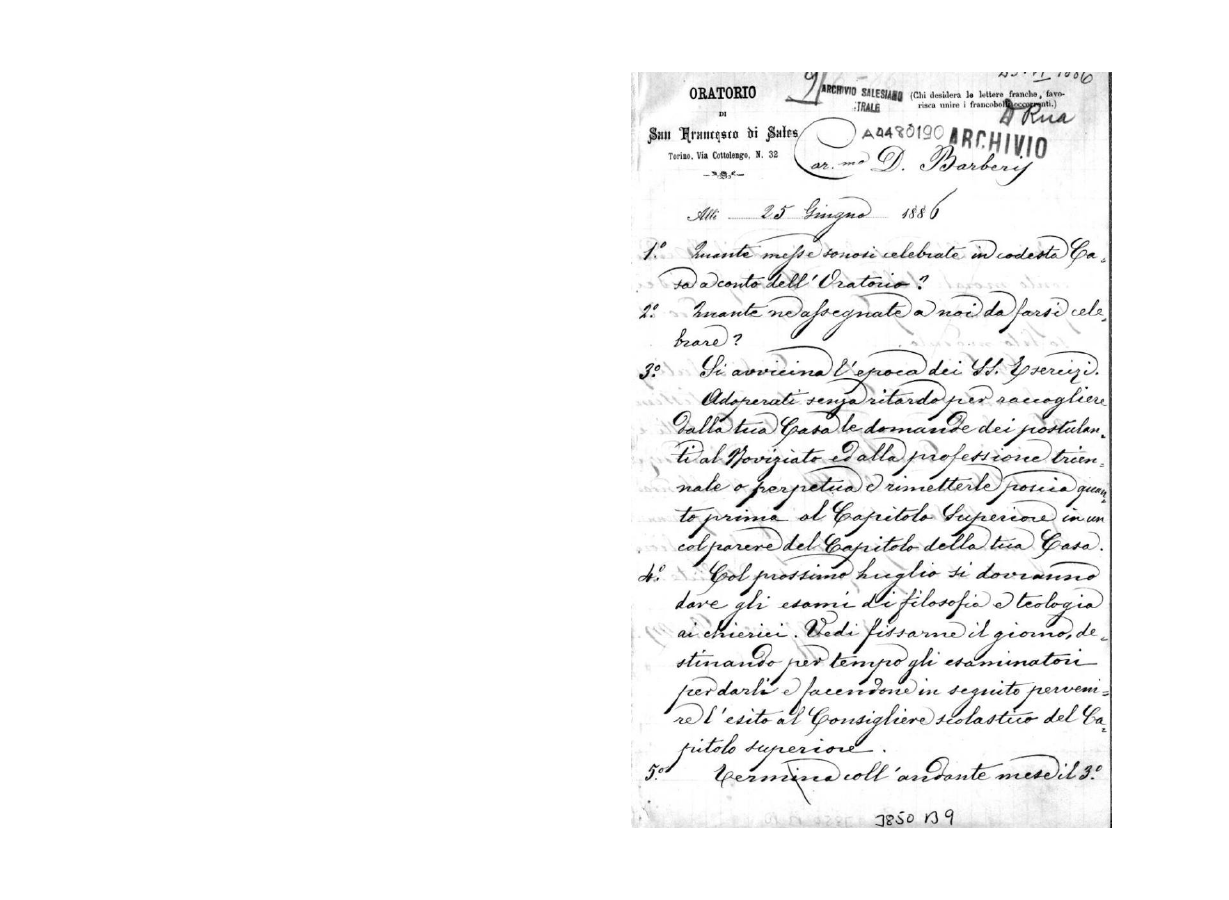 25-VI 1886
9
ORATORIO
DI
San Francesco di Sales
Torino, Via Cottolengo, N. 32
ARCHIVIO SALESIANO
(Chi desidera le lettere franche, favo-
risca unire i francobolli occorrenti.)
D Rua
A4480190
ARCHIVIO
Car.mo D. Barberis
Alli 25 Giugno 1886
1.° Quante messe sonosi celebrate in codesta Ca=
sa a conto dell'Oratorio?
2.° Quante ne assegnate a noi da farsi cele=
brare?
3.° Si avvicina l'epoca dei SS. Esercizi.
Adoperati senza ritardo per raccogliere
dalla tua Casa le domande dei postulan=
ti al Noviziato ed alla professione trien=
nale o perpetua e rimetterle poscia quan=
to prima al Capitolo Superiore in un
col parere del Capitolo della tua Casa.
4.° Col prossimo luglio si dovranno
dare gli esami di filosofia e teologia
ai chierici. Vedi fissarne il giorno, de=
stinando per tempo gli esaminatori
per darli e facendone in seguito perveni=
re l'esito al Consigliere scolastico del Ca=
pitolo superiore.
5.° Termina coll'andante mese il 3.°
3850 B 9